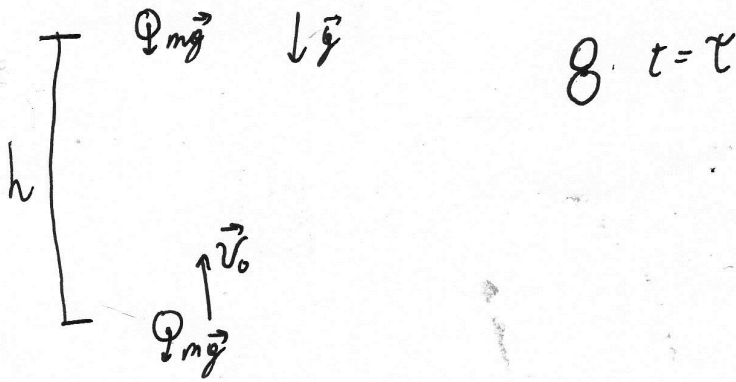 mg⃗ ↓ g⃗
t = τ
h
v⃗₀
mg⃗